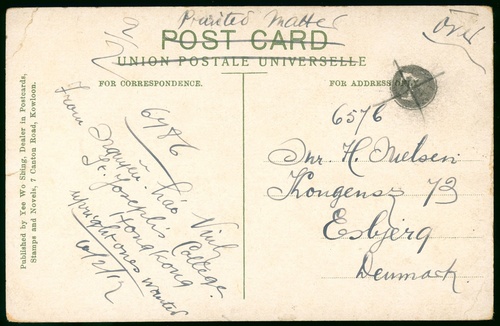 Printed Matter
over
POST CARD
UNION POSTALE UNIVERSELLE
FOR CORRESPONDENCE.
FOR ADDRESS ONLY
Published by Yee Wo Shing, Dealer in Postcards,
Stamps and Novels, 7 Canton Road, Kowloon.
6786
From Nguyễn. háo Vinh
St. Joseph's College
Hongkong
upright ones wanted
6576
Mr. H. Nielsen
Kongensg 73
Esbjerg
Denmark.